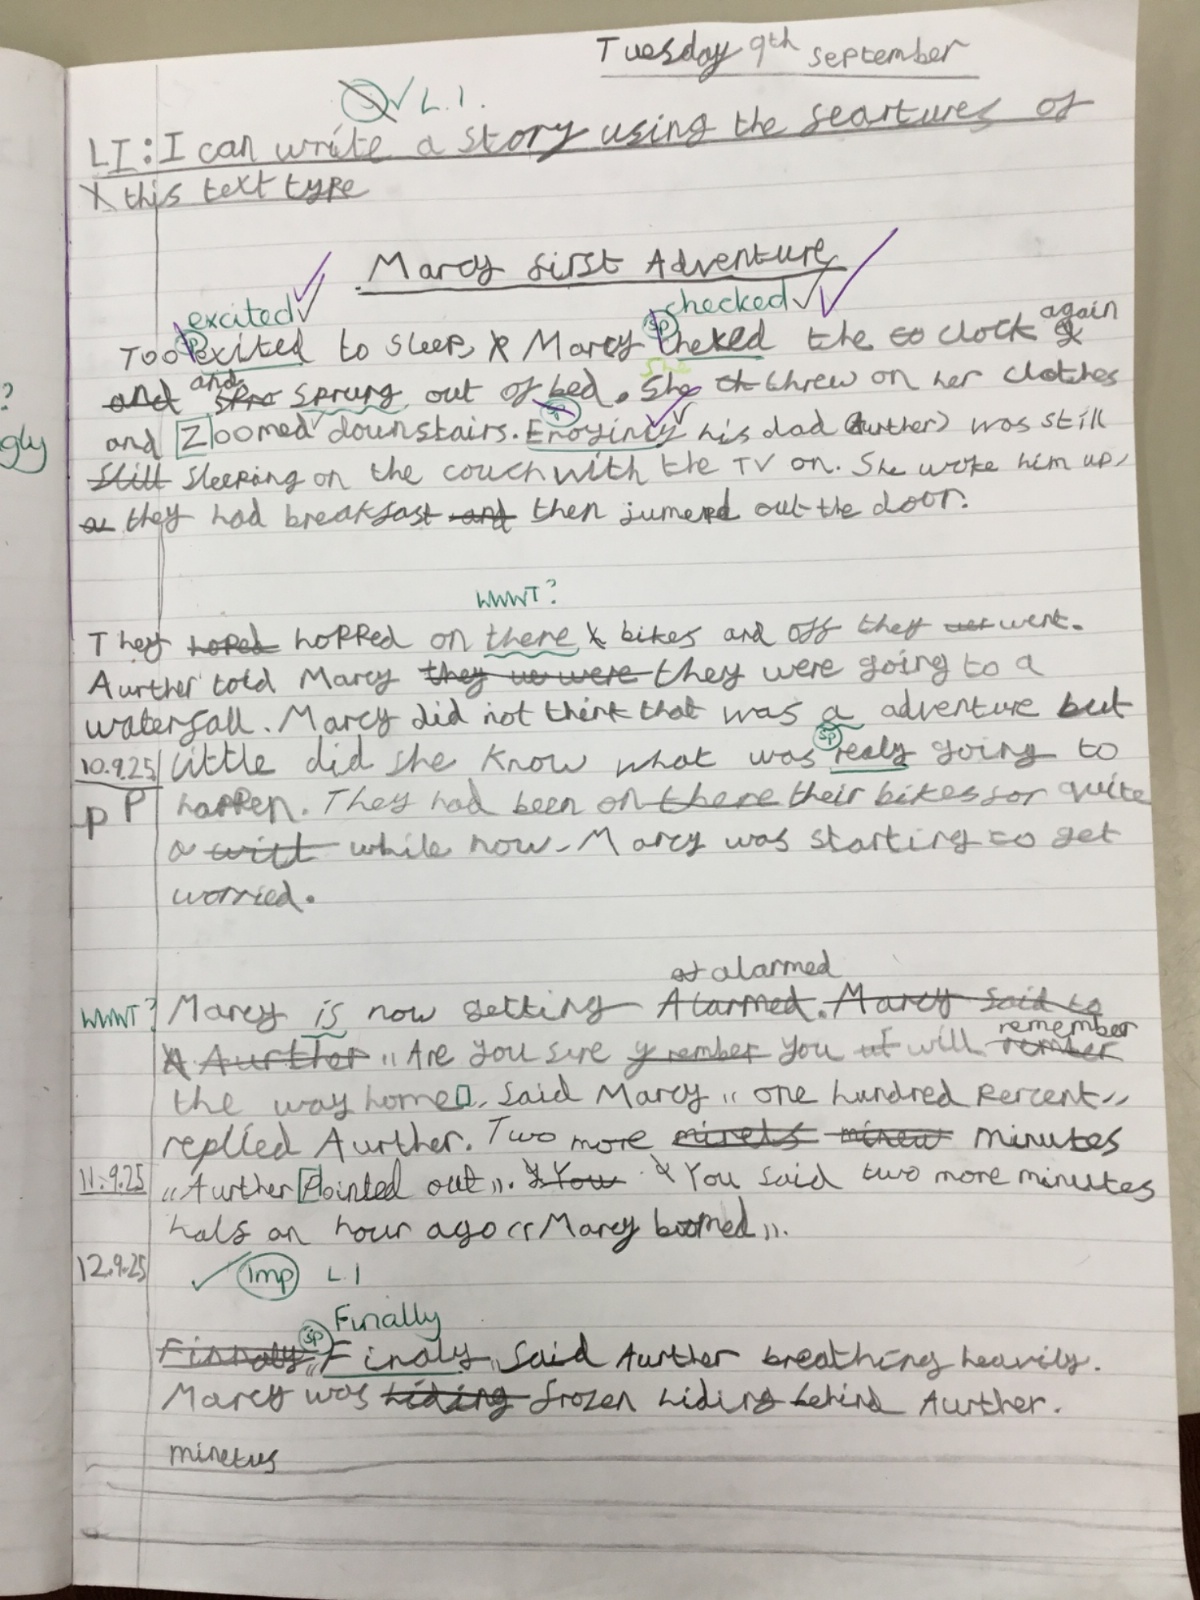 Tuesday 9th september
L.I.
LI: I can write a story using the seartures of
this text type
Marcy first Adventure
excited checked
Too exited to sleep, Marcy cheked the clock again
and sprung out of bed. She threw on her clothes
and Zoomed downstairs. Enoyinly his dad (Aurther) was still
gly
still sleeping on the couch with the TV on. She woke him up,
they had breakfast and then jumped out the door.
WWWT?
They hoped hopped on there bikes and off they went.
Aurther told Marcy they were they were going to a
waterfall. Marcy did not think that was a adventure but
sp
10.9.25 little did she know what was realy going to
PP happen. They had been on there their bikes for quite
a while now. Marcy was starting to get
worried.
alarmed
WWWT? Marcy is now getting Alarmed. Marcy said to
remember
Aurther "Are you sure y rember you will rember
the way home" said Marcy "one hundred percent"
replied Aurther. Two more minets minew minutes
11.9.25 "Aurther Pointed out". You You said two more minutes
half an hour ago "Marcy boomed".
12.9.25 Imp L.I
sp Finally
Finnaly "Finaly" said Aurther breathing heavily.
Marcy was hiding frozen hiding behind Aurther.
minetus